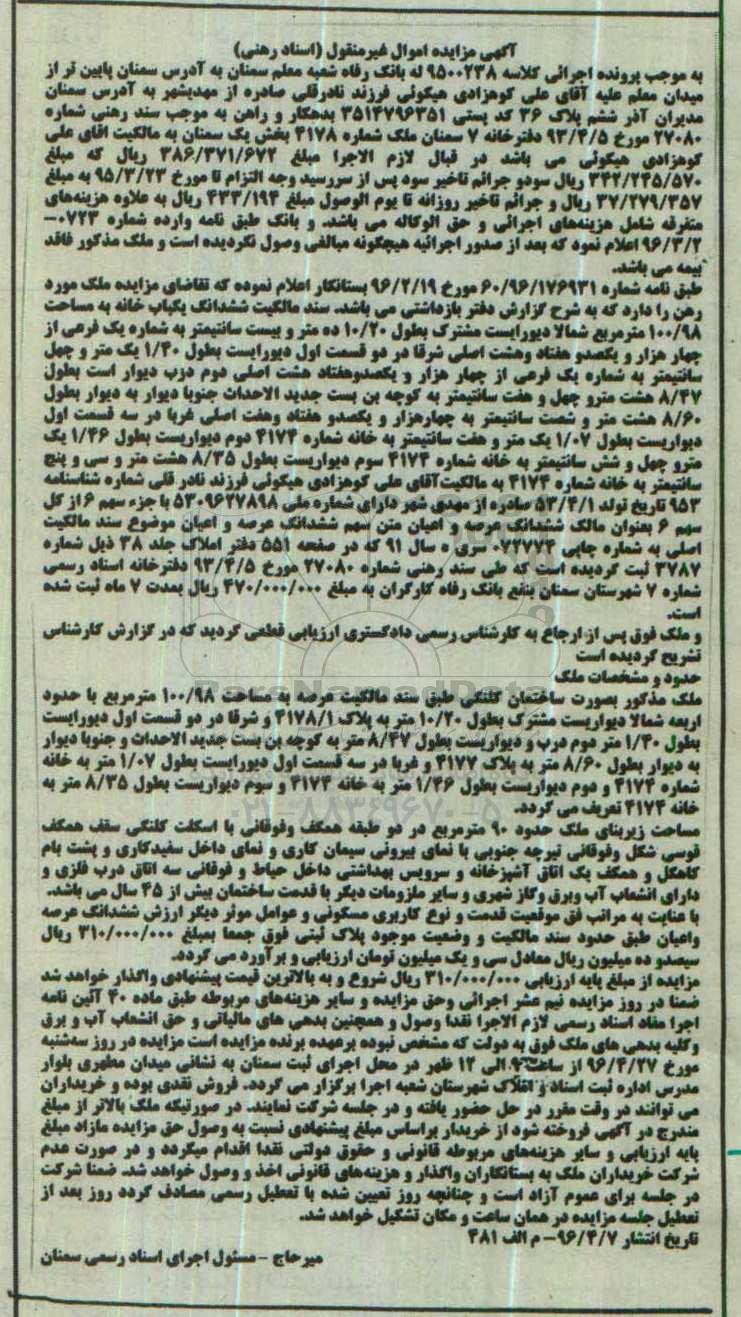 آگهی مزایده اموال غیرمنقول (اسناد رهنی)
به موجب پرونده اجرائی کلاسه ۹۵۰۰۲۳۸ له بانک رفاه شعبه معلم سمنان به آدرس سمنان پایین تر از
میدان معلم علیه آقای علی کوهزادی هیکوئی فرزند نادرقلی صادره از مهدیشهر به آدرس سمنان
مدیران آذر ششم پلاک ۳۶ کد پستی ۳۵۱۴۷۹۶۳۵۱ بدهکار و راهن به موجب سند رهنی شماره
۲۷۰۸۰ مورخ ۹۳/۴/۵ دفترخانه ۷ سمنان ملک شماره ۴۱۷۸ بخش یک سمنان به مالکیت اقای علی
کوهزادی هیکوئی می باشد در قبال لازم الاجرا مبلغ ۳۸۶/۳۷۱/۶۷۲ ریال که مبلغ
۳۴۲/۲۴۵/۵۷۰ ریال سودو جرائم تاخیر سود پس از سررسید وجه التزام تا مورخ ۹۵/۳/۲۳ به مبلغ
۳۷/۲۷۹/۳۵۷ ریال و جرائم تاخیر روزانه تا یوم الوصول مبلغ ۴۳۳/۱۹۴ ریال به علاوه هزینه‌های
متفرقه شامل هزینه‌های اجرائی و حق الوکاله می باشد. و بانک طبق نامه وارده شماره ۰۷۲۳-
۹۶/۳/۲ اعلام نمود که بعد از صدور اجرائیه هیچگونه مبالغی وصول نگردیده است و ملک مذکور فاقد
بیمه می باشد.
طبق نامه شماره ۶۰/۹۶/۱۷۶۹۳۱ مورخ ۹۶/۲/۱۹ بستانکار اعلام نموده که تقاضای مزایده ملک مورد
رهن را دارد که به شرح گزارش دفتر بازداشتی می باشد. سند مالکیت ششدانگ یکباب خانه به مساحت
۱۰۰/۹۸ مترمربع شمالا دیواریست مشترک بطول ۱۰/۲۰ ده متر و بیست سانتیمتر به شماره یک فرعی از
چهار هزار و یکصدو هفتاد وهشت اصلی شرقا در دو قسمت اول دیواریست بطول ۱/۴۰ یک متر و چهل
سانتیمتر به شماره یک فرعی از چهار هزار و یکصدوهفتاد هشت اصلی دوم درب دیوار است بطول
۸/۴۷ هشت مترو چهل و هفت سانتیمتر به کوچه بن بست جدید الاحداث جنوبا دیوار به دیوار بطول
۸/۶۰ هشت متر و شصت سانتیمتر به چهارهزار و یکصدو هفتاد وهفت اصلی غربا در سه قسمت اول
دیواریست بطول ۱/۰۷ یک متر و هفت سانتیمتر به خانه شماره ۴۱۷۴ دوم دیواریست بطول ۱/۴۶ یک
مترو چهل و شش سانتیمتر به خانه شماره ۴۱۷۴ سوم دیواریست بطول ۸/۳۵ هشت متر و سی و پنج
سانتیمتر به خانه شماره ۴۱۷۴ به مالکیت آقای علی کوهزادی هیکوئی فرزند نادر قلی شماره شناسنامه
۹۵۳ تاریخ تولد ۵۳/۴/۱ صادره از مهدی شهر دارای شماره ملی ۵۳۰۹۶۲۷۸۹۸ با جزء سهم ۶ از کل
سهم ۶ بعنوان مالک ششدانگ عرصه و اعیان متن سهم ششدانگ عرصه و اعیان موضوع سند مالکیت
اصلی به شماره چاپی ۰۷۲۷۷۴ سری ه سال ۹۱ که در صفحه ۵۵۱ دفتر املاک جلد ۳۸ ذیل شماره
۳۷۸۷ ثبت گردیده است که طی سند رهنی شماره ۲۷۰۸۰ مورخ ۹۳/۴/۵ دفترخانه اسناد رسمی
شماره ۷ شهرستان سمنان بنفع بانک رفاه کارگران به مبلغ ۴۷۰/۰۰۰/۰۰۰ ریال بمدت ۷ ماه ثبت شده
است.
و ملک فوق پس از ارجاع به کارشناس رسمی دادگستری ارزیابی قطعی گردید که در گزارش کارشناس
تشریح گردیده است
حدود و مشخصات ملک
ملک مذکور بصورت ساختمان کلنگی طبق سند مالکیت عرصه به مساحت ۱۰۰/۹۸ مترمربع با حدود
اربعه شمالا دیواریست مشترک بطول ۱۰/۲۰ متر به پلاک ۴۱۷۸/۱ و شرقا در دو قسمت اول دیورایست
بطول ۱/۴۰ متر دوم درب و دیواریست بطول ۸/۴۷ متر به کوچه بن بست جدید الاحداث و جنوبا دیوار
به دیوار بطول ۸/۶۰ متر به پلاک ۴۱۷۷ و غربا در سه قسمت اول دیورایست بطول ۱/۰۷ متر به خانه
شماره ۴۱۷۴ و دوم دیواریست بطول ۱/۴۶ متر به خانه ۴۱۷۴ و سوم دیواریست بطول ۸/۳۵ متر به
خانه ۴۱۷۴ تعریف می گردد.
مساحت زیربنای ملک حدود ۹۰ مترمربع در دو طبقه همکف وفوقانی با اسکلت کلنگی سقف همکف
قوسی شکل وفوقانی تیرچه جنوبی با نمای بیرونی سیمان کاری و نمای داخل سفیدکاری و پشت بام
کاهگل و همکف یک اتاق آشپزخانه و سرویس بهداشتی داخل حیاط و فوقانی سه اتاق درب فلزی و
دارای انشعاب آب وبرق وگاز شهری و سایر ملزومات دیگر با قدمت ساختمان بیش از ۴۵ سال می باشد.
با عنایت به مراتب فق موقعیت قدمت و نوع کاربری مسکونی و عوامل موثر دیگر ارزش ششدانگ عرصه
واعیان طبق حدود سند مالکیت و وضعیت موجود پلاک ثبتی فوق جمعا بمبلغ ۳۱۰/۰۰۰/۰۰۰ ریال
سیصدو ده میلیون ریال معادل سی و یک میلیون تومان ارزیابی و برآورد می گردد.
مزایده از مبلغ پایه ارزیابی ۳۱۰/۰۰۰/۰۰۰ ریال شروع و به بالاترین قیمت پیشنهادی واگذار خواهد شد
ضمنا در روز مزایده نیم عشر اجرائی وحق مزایده و سایر هزینه‌های مربوطه طبق ماده ۴۰ آئین نامه
اجرا مفاد اسناد رسمی لازم الاجرا نقدا وصول و همچنین بدهی های مالیاتی و حق انشعاب آب و برق
وکلیه بدهی های ملک فوق به دولت که مشخص نبوده برعهده برنده مزایده است مزایده در روز سه‌شنبه
مورخ ۹۶/۴/۲۷ از ساعت ۹ الی ۱۲ ظهر در محل اجرای ثبت سمنان به نشانی میدان مطهری بلوار
مدرس اداره ثبت اسناد و املاک شهرستان شعبه اجرا برگزار می گردد. فروش نقدی بوده و خریداران
می توانند در وقت مقرر در حل حضور یافته و در جلسه شرکت نمایند. در صورتیکه ملک بالاتر از مبلغ
مندرج در آگهی فروخته شود از خریدار براساس مبلغ پیشنهادی نسبت به وصول حق مزایده مازاد مبلغ
پایه ارزیابی و سایر هزینه‌های مربوطه قانونی و حقوق دولتی نقدا اقدام میگردد و در صورت عدم
شرکت خریداران ملک به بستانکاران واگذار و هزینه‌های قانونی اخذ و وصول خواهد شد. ضمنا شرکت
در جلسه برای عموم آزاد است و چنانچه روز تعیین شده با تعطیل رسمی مصادف گردد روز بعد از
تعطیل جلسه مزایده در همان ساعت و مکان تشکیل خواهد شد.
تاریخ انتشار ۹۶/۴/۷- م الف ۴۸۱
میرحاج - مسئول اجرای اسناد رسمی سمنان